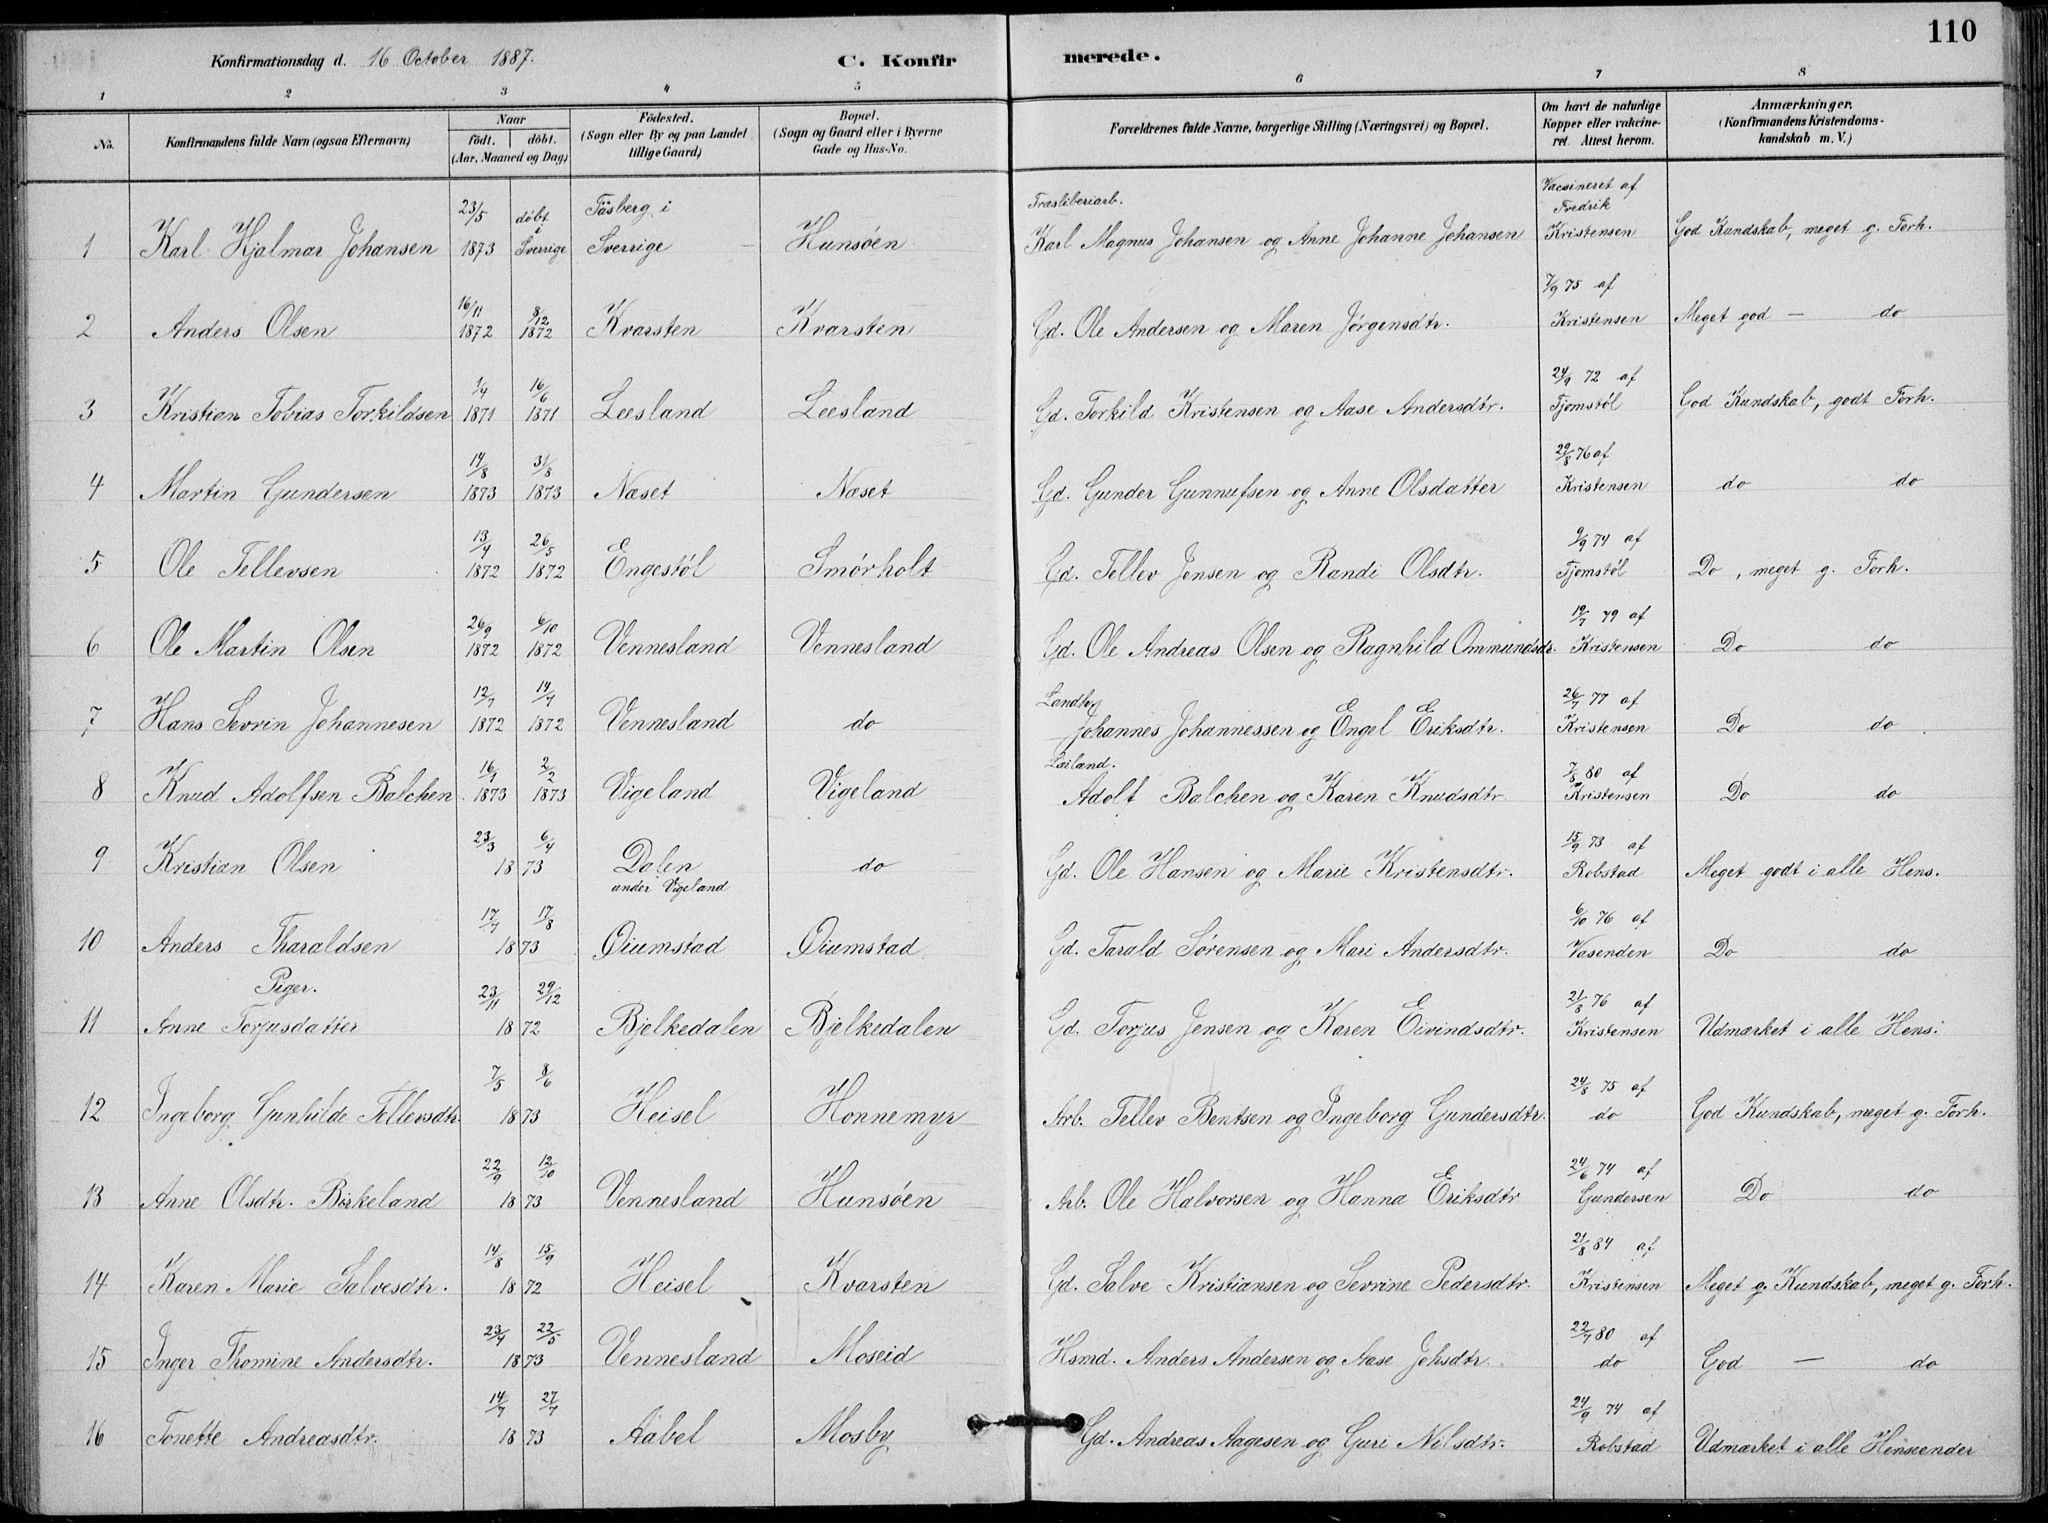 110
Konfirmationsdag d. 16 October 1887. C. Konfirmerede.
1 2 3 4 5 6 7 8
No. Konfirmandens fulde Navn (ogsaa Efternavn) Naar födt. döbt. (Aar, Maaned og Dag) Födested. (Sogn eller By og paa Landet tillige Gaard) Bopæl. (Sogn og Gaard eller i Byerne Gade og Hus-No. Forældrenes fulde Navne, borgerlige Stilling (Næringsvei) og Bopæl. Om havt de naturlige Kopper eller vakcineret. Attest herom. Anmærkninger, (Konfirmandens Kristendomskundskab m. V.)
1 Karl Hjalmar Johansen 23/5 1873 döbt i Sverrige Tösberg i Sverrige Hunsöen Træsliberiarb. Karl Magnus Johansen og Anne Johanne Johansen Vacsineret af Fredrik Kristensen God Kundskab, meget g. Forh.
2 Anders Olsen 16/11 1872 8/12 1872 Kvarsten Kvarsten Gd. Ole Andersen og Maren Jörgensdtr. 7/9 75 af Kristensen Meget god — do
3 Kristian Tobias Torkildsen 1/4 1871 16/6 1871 Leesland Leesland Gd. Torkild Kristensen og Aase Andersdtr. 24/9 72 af Tjomstöl God Kundskab, godt Forh.
4 Martin Gundersen 14/8 1873 31/8 1873 Næset Næset Gd. Gunder Gunnufsen og Anne Olsdatter 29/8 76 af Kristensen do do
5 Ole Tellevsen 13/4 1872 26/5 1872 Engestöl Smörholt Gd. Tellev Jensen og Randi Olsdtr. 9/9 74 af Tjomstöl Do, meget g. Forh.
6 Ole Martin Olsen 26/9 1872 6/10 1872 Vennesland Vennesland Gd. Ole Andreas Olsen og Ragnhild Ommundsdtr. 19/7 79 af Kristensen Do do
7 Hans Sevrin Johannesen 12/7 1872 14/7 1872 Vennesland do Johannes Johannessen og Engel Eriksdtr. 26/7 77 af Kristensen Do do
8 Knud Adolfsen Balchen 16/1 1873 2/2 1873 Vigeland Vigeland Adolf Balchen og Karen Knudsdtr. 7/8 80 af Kristensen Do do
9 Kristian Olsen 23/3 6/4 1873 Dalen under Vigeland do Gd. Ole Hansen og Marie Kristensdtr. 15/9 73 af Robstad Meget godt i alle Hens.
10 Anders Tharaldsen 17/7 17/8 1873 Öiumstad Öiumstad Gd. Tarald Sörensen og Mari Andersdtr. 6/10 76 af Vasenden Do do
Piger.
11 Anne Torjusdatter 23/11 29/12 1872 Bjelkedalen Bjelkedalen Gd. Torjus Jensen og Karen Eivindsdtr. 21/8 76 af Kristensen Udmærket i alle Hens:
12 Ingeborg Gunhilde Tellevsdtr. 7/5 8/6 1873 Heisel Honnemyr Arb. Tellev Bentsen og Ingeborg Gundersdtr. 24/8 75 af do God Kundskab, meget g. Forh.
13 Anne Olsdtr. Birkeland 22/9 12/10 1873 Vennesland Hunsöen Arb. Ole Halvorsen og Hanna Eriksdtr 24/6 74 af Gundersen Do do
14 Karen Marie Salvesdtr. 14/8 15/9 1872 Heisel Kvarsten Gd. Salve Kristiansen og Sevrine Pedersdtr. 21/8 84 af Kristensen Meget g. Kundskab, meget g. Forh.
15 Inger Thomine Andersdtr. 23/4 22/5 1873 Vennesland Moseid Hsmd. Anders Andersen og Aase Johsdtr. 22/7 80 af do God — do
16 Tonette Andreasdtr. 14/7 27/7 1873 Aabel Mosby Gd. Andreas Aagesen og Guri Nilsdtr. 24/9 74 af Robstad Udmærket i alle Henseender